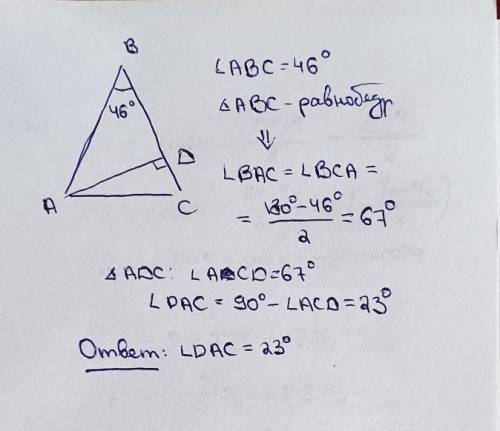 B
46°
D
A
C
∠ABC = 46°
△ABC - равнобедр
⇓
∠BAC = ∠BCA =
= (180° - 46°)/2 = 67°
△ADC: ∠ACD = 67°
∠DAC = 90° - ∠ACD = 23°
Ответ: ∠DAC = 23°